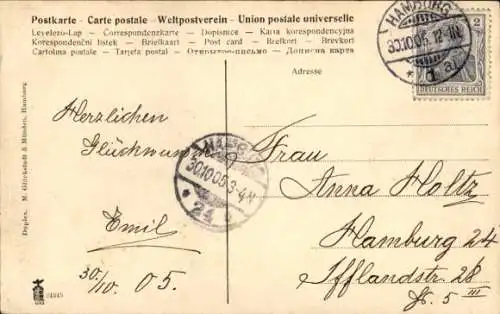 Postkarte - Carte postale - Weltpostverein - Union postale universelle
Levelező-Lap — Correspondenzkarte — Dopisnice — Карта korespondencyjna
Korespondenční listek — Briefkaart — Post card — Brefkort — Brevkort
Cartolina postale — Tarjeta postal — Открытое письмо — Дописна карта
Adresse
HAMBURG
30.10.05. 12-1N.
* 1 a
2
DEUTSCHES REICH
Herzlichen
Glückwunsch
Emil
30./10. 05.
HAMBURG
30.10.05. 3-4N
* 24
Frau
Anna Holtz
Hamburg 24
Ifflandstr. 28
Hs. 5 III
Duplex. M. Glückstadt & Münden, Hamburg